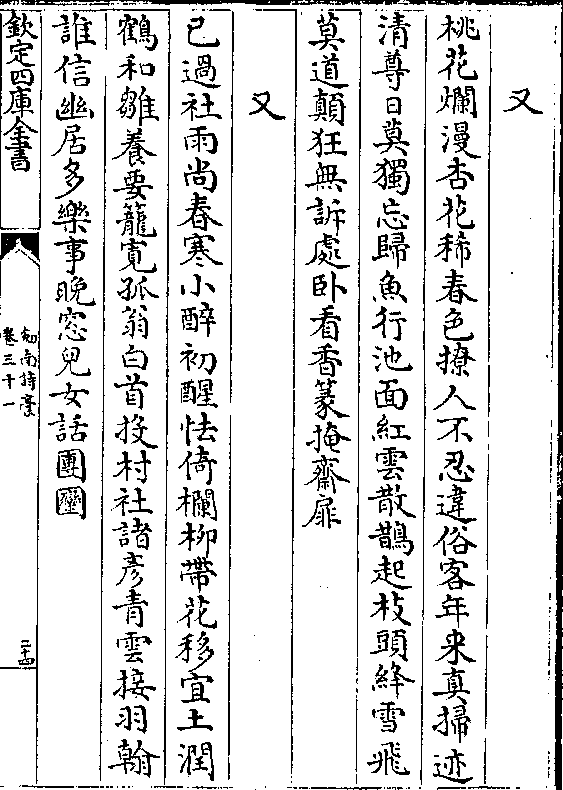 又
桃花爛漫杏花稀春色撩人不忍違俗客年来真掃迹
清尊日莫獨忘歸魚行池面紅雲散鵲起枝頭絳雪飛
莫道顛狂無訴處卧看香篆掩齋扉
又
已過社雨尚春寒小醉初醒怯倚欄柳帶花移宜土潤
鶴和雛養要籠寛孤翁白首投村社諸彦青雲接羽翰
誰信幽居多樂事晚窓兒女話團圞
欽定四庫全書
劍南詩稾
卷三十一
二十四